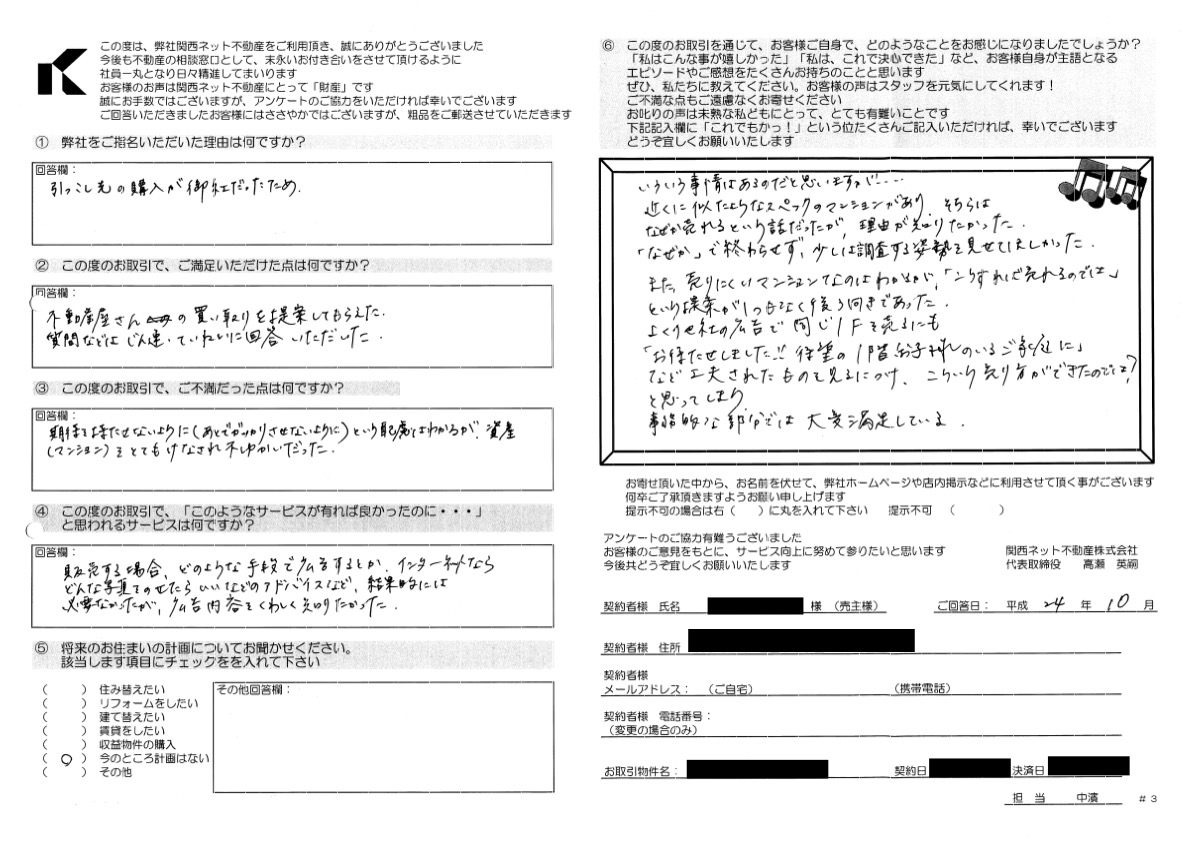 この度は、弊社関西ネット不動産をご利用頂き、誠にありがとうございました
今後も不動産の相談窓口として、末永いお付き合いをさせて頂けるように
社員一丸となり日々精進してまいります
お客様のお声は関西ネット不動産にとって「財産」です
誠にお手数ではございますが、アンケートのご協力をいただければ幸いでございます
ご回答いただきましたお客様にはささやかではございますが、粗品をご郵送させていただきます
① 弊社をご指名いただいた理由は何ですか？
回答欄：
引っこし先の購入が御社だったため.
② この度のお取引で、ご満足いただけた点は何ですか？
回答欄：
不動産屋さんの買い取りを提案してもらえた.
質問などはじん速・ていねいに回答いただいた.
③ この度のお取引で、ご不満だった点は何ですか？
回答欄：
期待を持たせないように(あとでガッカリさせないように)という配慮はわかるが、資産
(マンション)をとてもけなされ不ゆかいだった.
④ この度のお取引で、「このようなサービスが有れば良かったのに・・・」
と思われるサービスは何ですか？
回答欄：
販売する場合、どのような手段で広告するとか、インターネットなら
どんな写真をのせたらいいなどのアドバイスなど、結果的には
必要なかったが、広告内容をくわしく知りたかった.
⑤ 将来のお住まいの計画についてお聞かせください。
該当します項目にチェックをを入れて下さい
（　　）住み替えたい
（　　）リフォームをしたい
（　　）建て替えたい
（　　）賃貸をしたい
（　　）収益物件の購入
（ ○ ）今のところ計画はない
（　　）その他
その他回答欄：
⑥ この度のお取引を通じて、お客様ご自身で、どのようなことをお感じになりましたでしょうか？
「私はこんな事が嬉しかった」「私は、これで決心できた」など、お客様自身が主語となる
エピソードやご感想をたくさんお持ちのことと思います
ぜひ、私たちに教えてください。お客様の声はスタッフを元気にしてくれます！
ご不満な点もご遠慮なくお寄せください
お叱りの声は未熟な私どもにとって、とても有難いことです
下記記入欄に「これでもかっ！」という位たくさんご記入いただければ、幸いでございます
どうぞ宜しくお願いいたします
いろいろ事情はあるのだと思いますが….
近くに似たようなスペックのマンションがあり、そちらは
なぜか売れるという話だったが、理由が知りたかった.
「なぜか」で終わらせず、少しは調査する姿勢を見せてほしかった.
また、売りにくいマンションなのはわかるが、「こうすれば売れるのでは」
という提案が1つもなく後ろ向きであった.
よく他社の広告で同じ1Fを売るにも
「お待たせしました!! 待望の1階お子様のいるご家庭に」
など工夫されたものを見るにつけ、こういう売り方ができたのでは?
と思ってしまう
事務的な部分では大変満足している.
お寄せ頂いた中から、お名前を伏せて、弊社ホームページや店内掲示などに利用させて頂く事がございます
何卒ご了承頂きますようお願い申し上げます
提示不可の場合は右（　　）に丸を入れて下さい　提示不可　（　　　）
アンケートのご協力有難うございました
お客様のご意見をもとに、サービス向上に努めて参りたいと思います
今後共どうぞ宜しくお願いいたします
関西ネット不動産株式会社
代表取締役　高瀬　英嗣
契約者様　氏名　様　（売主様）　ご回答日：　平成　24　年　10　月
契約者様　住所
契約者様
メールアドレス：　（ご自宅）　（携帯電話）
契約者様　電話番号：
（変更の場合のみ）
お取引物件名：　契約日　決済日
担　当　中濱　＃３